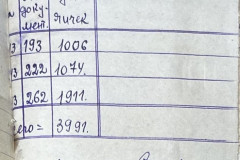 доку-
мент. ячеек
13 193 1006
13 222 1074.
3 262 1911.
его = 3991.